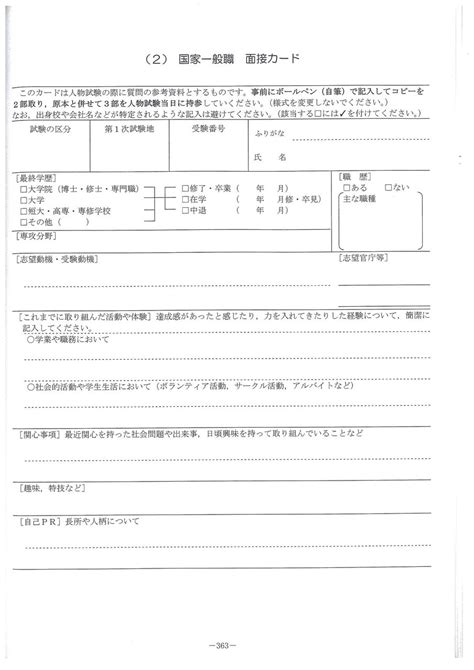 （２） 国家一般職 面接カード
このカードは人物試験の際に質問の参考資料とするものです。事前にボールペン（自筆）で記入してコピーを
２部取り，原本と併せて３部を人物試験当日に持参していください。（様式を変更しないでください。）
なお，出身校や会社名などが特定されるような記入は避けてください。（該当する□には✓を付けてください。）
試験の区分 第１次試験地 受験番号 ふりがな
氏 名
［最終学歴］ ［職 歴］
□大学院（博士・修士・専門職） □修了・卒業（ 年 月） □ある □ない
□大学 □在学 （ 年 月修・卒見） 主な職種
□短大・高専・専修学校 □中退 （ 年 月）
□その他（ ）
［専攻分野］
［志望動機・受験動機］ ［志望官庁等］
［これまでに取り組んだ活動や体験］達成感があったと感じたり，力を入れてきたりした経験について，簡潔に
記入してください。
○学業や職務において
○社会的活動や学生生活において（ボランティア活動，サークル活動，アルバイトなど）
［関心事項］最近関心を持った社会問題や出来事，日頃興味を持って取り組んでいることなど
［趣味，特技など］
［自己ＰＲ］長所や人柄について
－363－